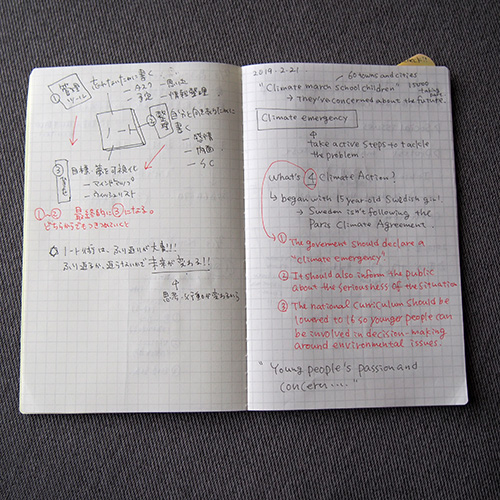 ① 管理
ツール
忘れないために書く
— タスク
— 予定
— 思い出
— 情報管理
ノート
② 整理
自分と向き合うために
書く
— 感情
— 内面
③
目標・夢を可視化
— マインドマップ
— ウィッシュリスト
①〜② 最終的に③になる。
ノート術は、ふり返りが大事!!!
ふり返るか、返らないかで未来が変わる!!
思考・行動が変わるから
2019.2.21
60 towns and cities
"Climate march school children"
15000
taking
part
→ They're concerned about the future.
Climate emergency
take active steps to tackle
the problem.
What's 4 Climate Action?
↳ began with 15 year-old Swedish girl.
↳ Sweden isn't following the
Paris Climate Agreement.
① The goverment should declare a
"climate emergency"
② It should also inform the public
about the seriousness of the situation
③ The national curriculum should be
lowered to 16 so younger people can
be involved in decision-making
around environmental issues.
"Young people's passion and
concern...."